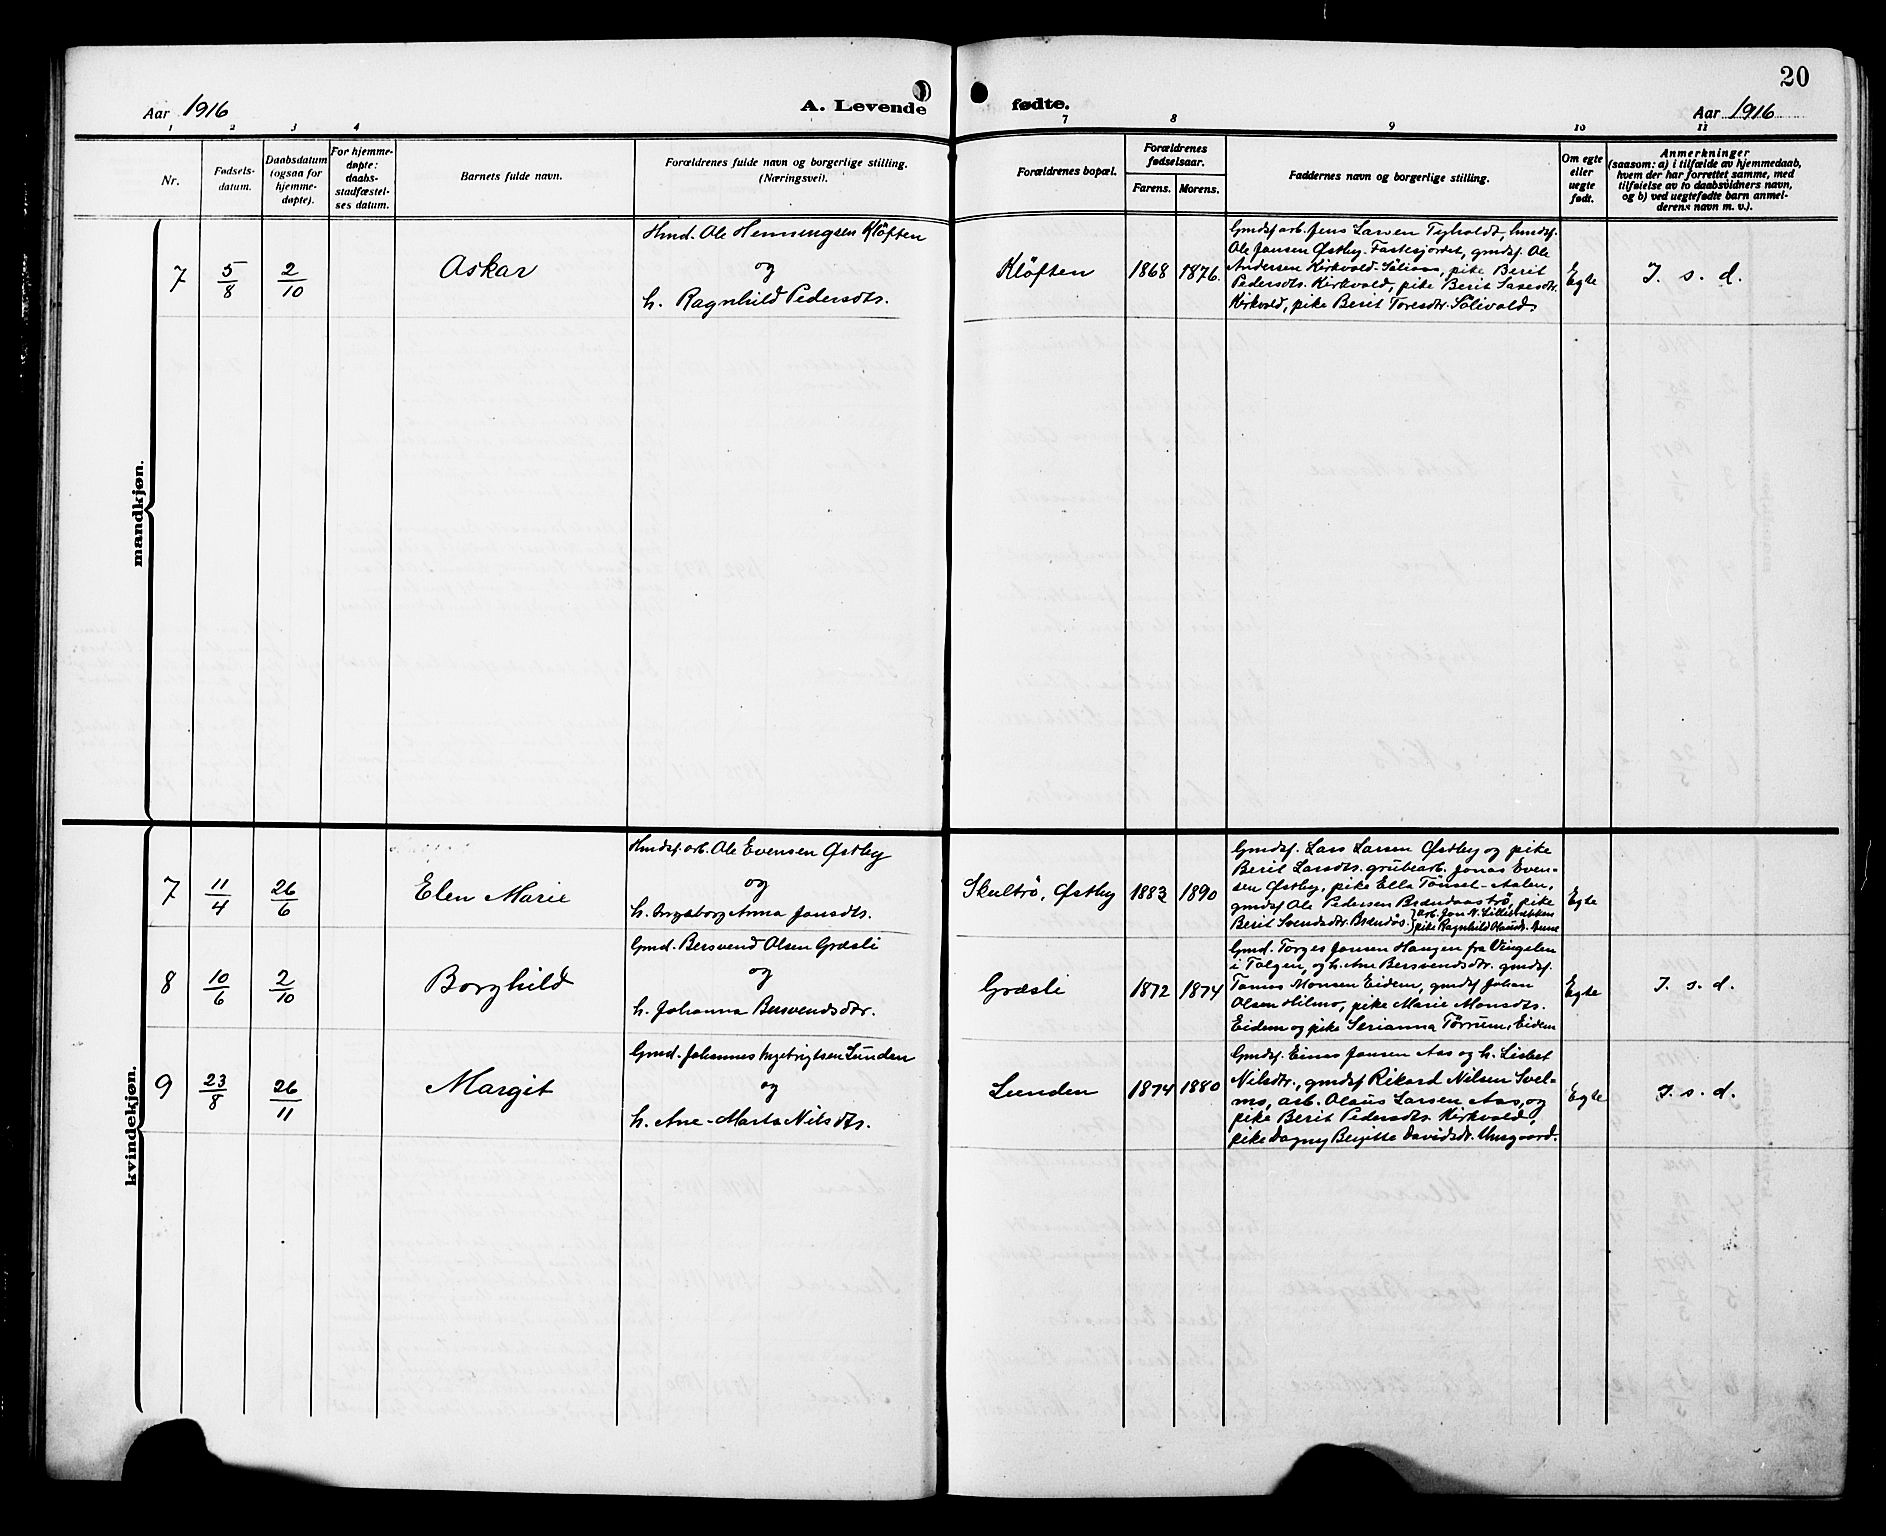 20
Aar 1916
A. Levende
fødte.
Aar 1916
1 2 3 4
7 8 9 10 11
Nr.
Fødsels-
datum.
Daabsdatum
(ogsaa for
hjemme-
døpte).
For hjemme-
døpte:
daabs-
stadfæstel-
ses datum.
Barnets fulde navn.
Forældrenes fulde navn og borgerlige stilling.
(Næringsvei).
Forældrenes bopæl.
Forældrenes
fødselsaar.
Farens. Morens.
Faddernes navn og borgerlige stilling.
Om egte
eller
uegte
født.
Anmerkninger
(saasom: a) i tilfælde av hjemmedaab,
hvem der har forrettet samme, med
tilføielse av to daabsvidners navn,
og b) ved uegtefødte barn anmel-
derens navn m. v.).
mandkjøn.
7
5/8
2/10
Askar
Hmd. Ole Henningsen Kløften
og
h. Ragnhild Pedersdtr.
Kløften
1868 1876
Gmdsf. arb. Jens Larsen Tyholdt, hmdsf.
Ole Jonsen Østby-Fastesjordet, gmdsf. Ole
Andersen Kirkvold-Søliaas, pike Berit
Pedersdtr. Kirkvold, pike Berit Larsdtr.
Kirkvold, pike Berit Toresdtr. Sølivold.
Egte
I. s. d.
kvindekjøn.
7
11/4
26/6
Elen Marie
Hmdsf. arb. Ole Evensen Østby
og
h. Ingeborg Anna Jonsdtr.
Skultrø, Østby
1883 1890
Gmdsf. Lars Larsen Østby og pike
Berit Larsdtr. grubearb. Jonas Even-
sen Østby, pike Ella Tønset-Aalen,
gmdsf Ole Pedersen Brændaastrø, pike
Berit Svendsdtr. Brændøs. arb. Jon N. Lillebakken
pike Ragnhild Olausdtr. Unne
Egte
8
10/6
2/10
Borghild
Gmd. Bersvend Olsen Græsli
og
h. Johanna Bersvendsdtr.
Græsli
1872 1874
Gmd. Torges Jonsen Haugen fra Vingelen
i Tolgen, og h. Ane Bersvendsdtr. gmdsf.
Tomas Monsen Eidem, gmdsf Johan
Olsen Hilmo, pike Marie Monsdtr.
Eidem og pike Serianna Tørrum, Eidem
Egte
I. s. d.
9
23/8
26/11
Margit
Gmd. Johannes Ingebrigtsen Lunden
og
h. Ane-Marta Nilsdtr.
Lunden
1874 1880
Gmdsf. Einar Jonsen Aas og h. Lisbet
Nilsdtr., gmdsf Rikard Nilsen Svel-
mo, arb. Olaus Larsen Aas, og
pike Berit Pedersdtr. Kirkvold,
pike Dagny Bergitte Davidsdtr. Unsgaard.
Egte
I. s. d.